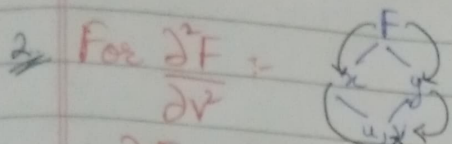 2. For ∂²F/∂v² :-
F
x y
u, v